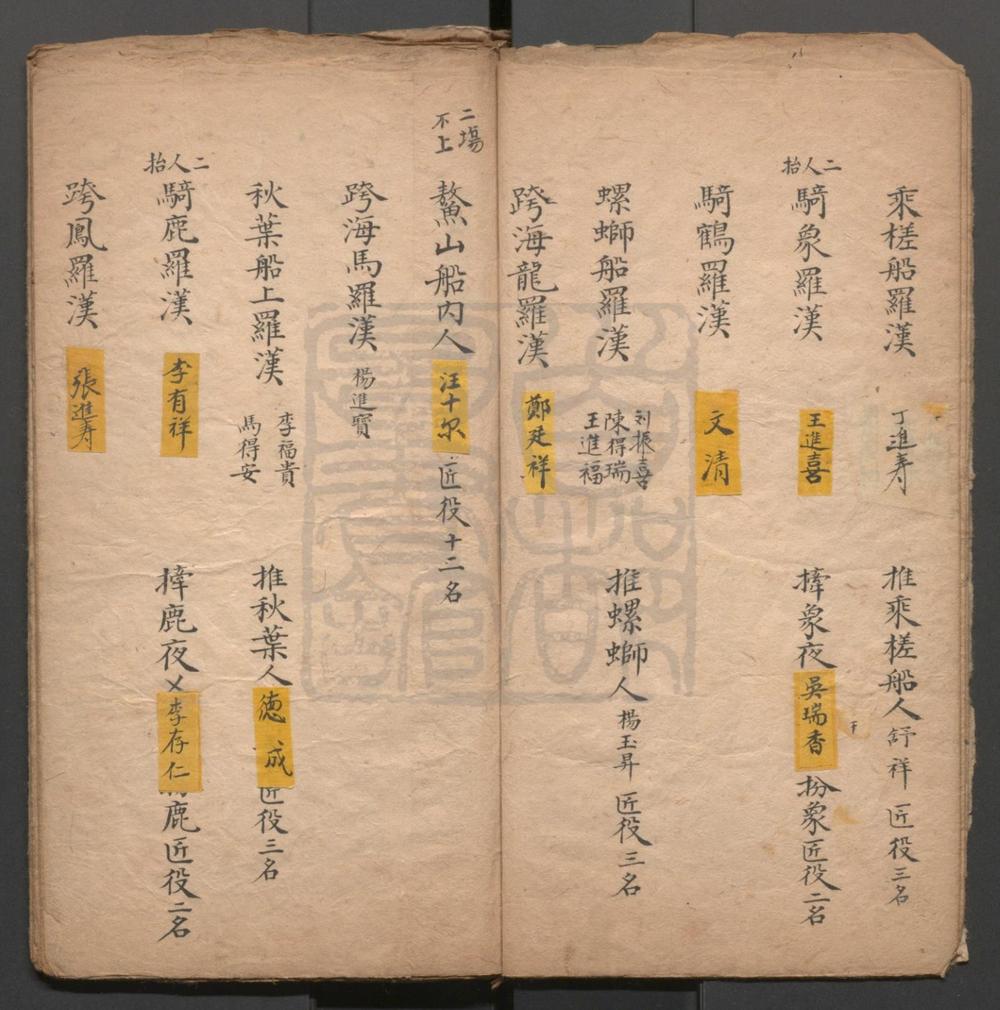 乘槎船羅漢 丁進寿 推乘槎船人 舒祥 匠役三名
二人抬
騎象羅漢 王進喜 擰象夜 吳瑞香 扮象匠役二名
騎鶴羅漢 文清
螺螄船羅漢 刘振喜 陳得瑞 王進福 推螺螄人 楊玉昇 匠役三名
跨海龍羅漢 鄭廷祥
二塲
不上
鰲山船內人 汪十尔 匠役十二名
跨海馬羅漢 楊進寶
秋葉船上羅漢 李福貴 馬得安 推秋葉人 德成 匠役三名
二人抬
騎鹿羅漢 李有祥 擰鹿夜 李存仁 鹿匠役二名
跨鳳羅漢 張進寿